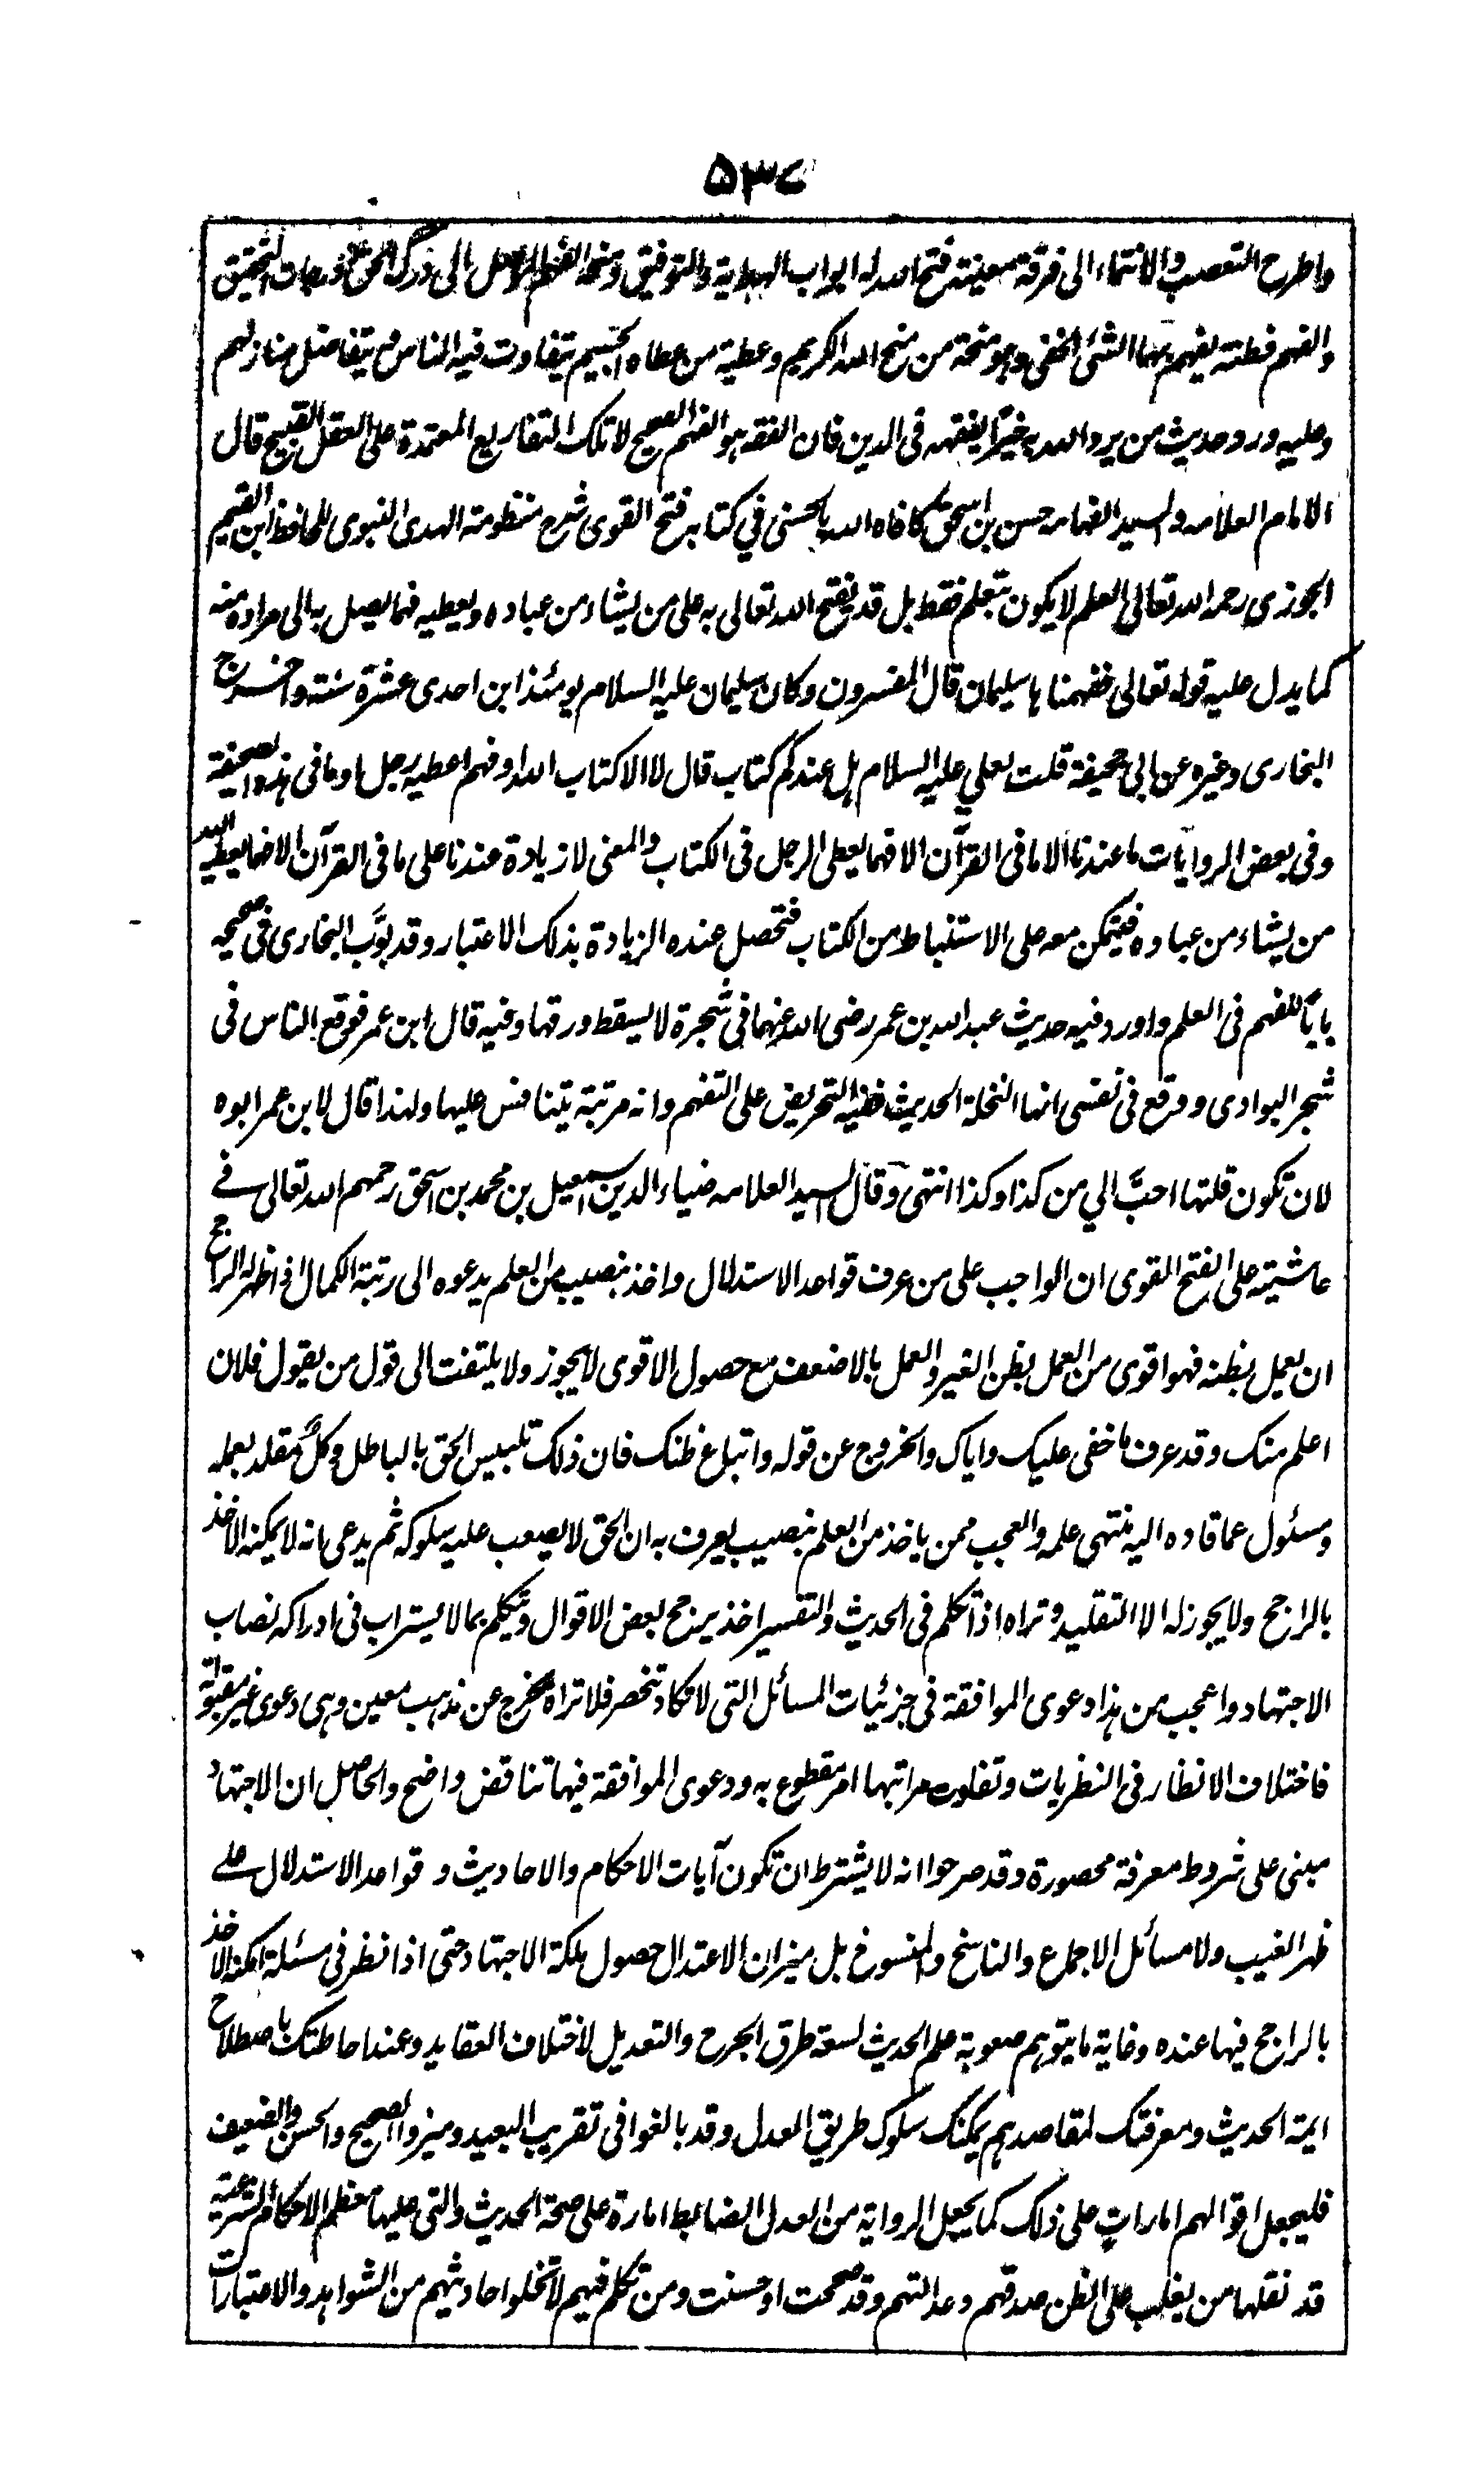 ۵۳۷
واطرح التعصب والانتماء الى فرقة معينة فتح الله له ابواب الهداية والتوفيق ومنحه الفهم الموصل الى درك الحق ودرجات التحقيق
والفهم فطنة يفهم بها الشئ الخفى وهو منحة من منح الله الكريم وعطية من عطاه الجسيم يتفاوت فيه الناس و يتفاضل منازلهم
وعليه ورد حديث من يرد الله به خيرًا يفقهه فى الدين فان الفقه هو الفهم الصحيح لا تلك التفاريع المعتمدة على العقل القبيح قال
الامام العلامه والسيد الفهامه حسن بن اسحق كافاه الله بالحسنى في كتابه فتح القوى شرح منظومة الهدى النبوى للحافظ ابن القيم
الجوزى رحمه الله تعالى العلم لا يكون بتعلم فقط بل قد يفتح الله تعالى به على من يشاء من عباده ويعطيه فهما يصل به الى مراده منه
كما يدل عليه قوله تعالى ففهمناها سليمان قال المفسرون وكان سليمان عليه السلام يومئذ ابن احدى عشرة سنة واخرج
البخارى وغيره عن ابى جحيفة قلت لعلي عليه السلام هل عندكم كتاب قال لا الا كتاب الله او فهم اعطيه رجل او ما فى هذه الصحيفة
وفى بعض الروايات ما عندنا الا ما فى القرآن الا فهما يعطى الرجل فى الكتاب والمعنى لا زيادة عندنا على ما فى القرآن الا فهما يعطيه الله
من يشاء من عباده فيتمكن معه على الاستنباط من الكتاب فتحصل عنده الزيادة بذلك الاعتبار وقد بوَّب البخارى فى صحيحه
بابًا للفهم فى العلم واورد فيه حديث عبد الله بن عمر رضى الله عنهما فى شجرة لا يسقط ورقها وفيه قال ابن عمر فوقع الناس فى
شجر البوادى ووقع فى نفسى انها النخلة الحديث ففيه التحريض على التفهم وانه مرتبة يتنافس عليها ولهذا قال لابن عمر ابوه
لان تكون قلتها احبَّ الي من كذا وكذا انتهى وقال السيد العلامه ضياء الدين اسمعيل بن محمد بن اسحق رحمهم الله تعالى فے
حاشيته على الفتح القوى ان الواجب على من عرف قواعد الاستدلال واخذ بنصيب من العلم يدعوه الى رتبة الكمال اذا ظهر له الراجح
ان يعمل بظنه فهو اقوى من العمل بظن الغير والعمل بالاضعف مع حصول الاقوى لا يجوز ولا يلتفت الى قول من يقول فلان
اعلم منك وقد عرف ما خفى عليك واياك والخروج عن قوله واتباع ظنك فان ذلك تلبيس الحق بالباطل وكلٌّ مقلد بعمله
ومسئول عما قاده اليه منتهى علمه والعجب ممن ياخذ من العلم بنصيب يعرف به ان الحق لا يصعب عليه سلوكه ثم يدعى انه لا يمكنه الاخذ
بالراجح ولا يجوز له الا التقليد وتراه اذا تكلم فى الحديث والتفسير اخذ يرجح بعض الاقوال ويتكلم بما لا يستراب فى ادراكه نصاب
الاجتهاد واعجب من هذا دعوى الموافقة فى جزئيات المسائل التى لا تكاد تنحصر فلا تراه يخرج عن مذهب معين وهى دعوى غير مقبولة
فاختلاف الانظار فى النظريات وتفاوت مراتبها امر مقطوع به ودعوى الموافقة فيها تناقض واضح والحاصل ان الاجتهاد
مبنى على شروط معرفة محصورة وقد صرحوا انه لا يشترط ان تكون آيات الاحكام والاحاديث و قواعد الاستدلال علے
ظهر الغيب ولا مسائل الاجماع والناسخ والمنسوخ بل ميزان الاعتدال حصول ملكة الاجتهاد حتى اذا نظر فى مسئلة امكنه الاخذ
بالراجح فيها عنده وغاية ما يتوهم صعوبة علم الحديث لسعة طرق الجرح والتعديل لاختلاف العقايد وعند احاطتك باصطلاح
ايمة الحديث ومعرفتك لمقاصدهم يمكنك سلوك طريق العدل وقد بالغوا فى تقريب البعيد وميزوا الصحيح والحسن والضعيف
فليجعل اقوالهم اماراتٍ على ذلك كما يجعل الرواية من العدل الضابط امارة على صحة الحديث والتى عليها معظم الاحكام الشرعية
قد نقلها من يغلب على الظن صدقهم وعدالتهم وقد صححت او حسنت ومن تكلم فيهم لا تخلوا حاديثهم من الشواهد والاعتبارات